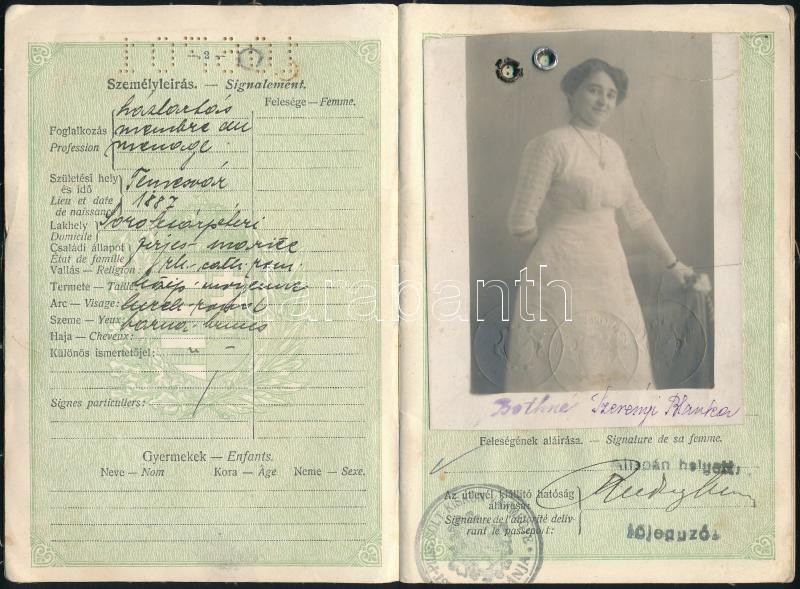 — 3 —
Személyleírás. — Signalement.
Felesége — Femme.
háztartás
Foglalkozás membre du
Profession ménage
Születési hely és idő Temesvár
Lieu et date de naissance 1887
Lakhely
Domicile
Családi állapot férjes - mariée
État de famille
Vallás — Religion: rk. cath. rom
Termete — Taille közép - moyenne
Arc — Visage: kerek - rond
Szeme — Yeux barna - bruns
Haja — Cheveux:
Különös ismertetőjel:
Signes particuliers:
Gyermekek — Enfants.
Neve — Nom Kora — Âge Neme — Sexe.
darabanth
Bothné Szerényi Blanka
Feleségének aláírása. — Signature de sa femme.
Az útlevél kiállító hatóság aláírása:
Signature de l'autorité délivrant le passeport:
főjegyző.